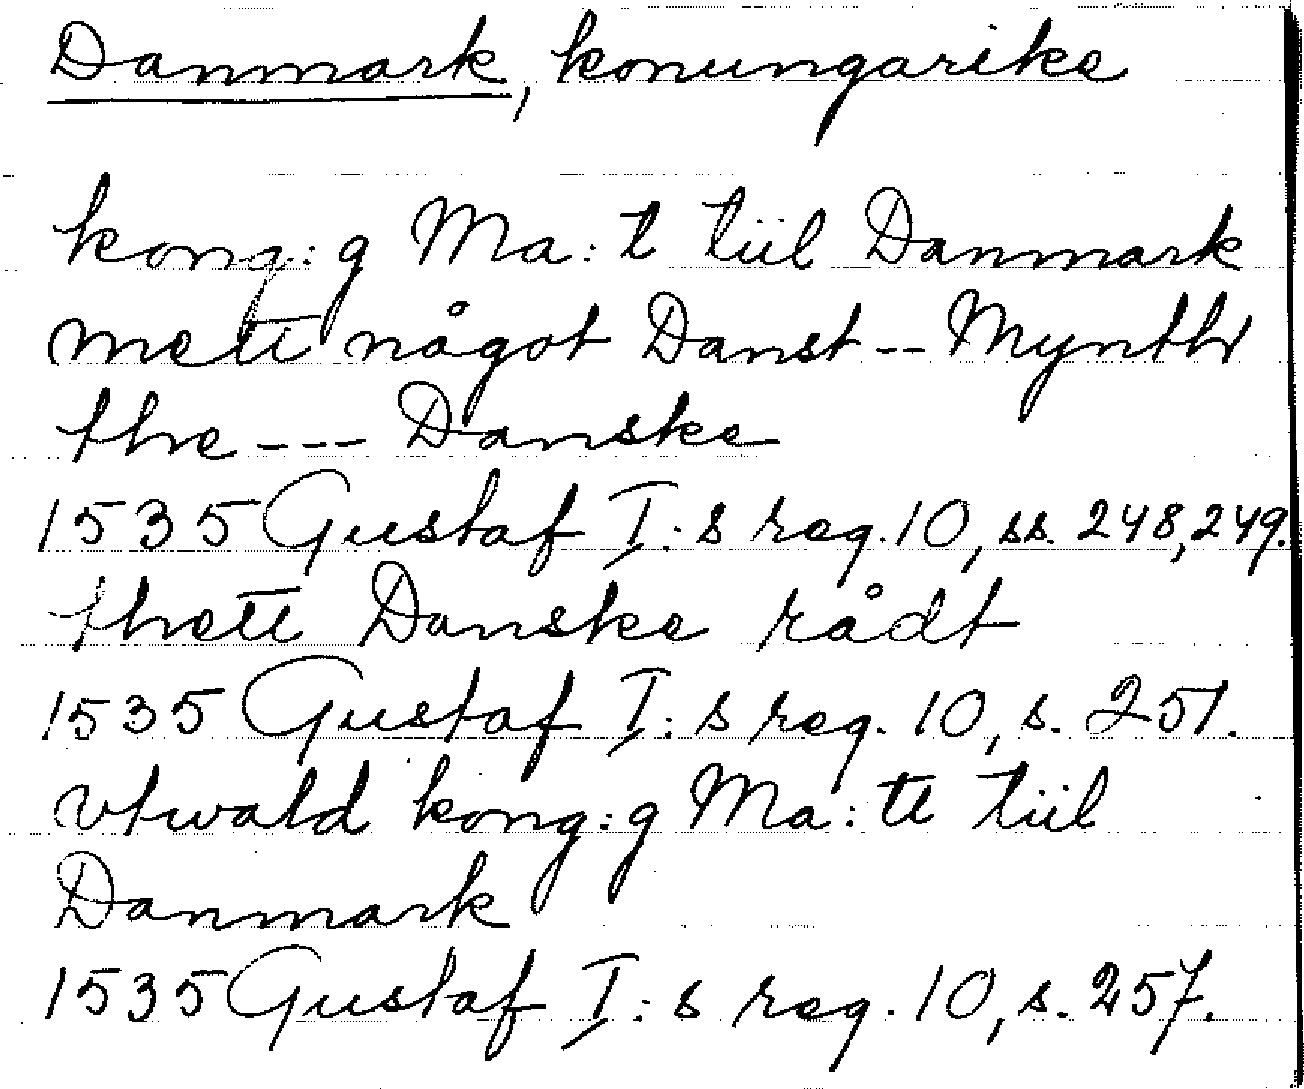 Danmark, konungarike
kong:g Ma:t tiil Danmark
mett något Danst -- Mynthr
the --- Danske
1535 Gustaf I:s reg. 10, ss. 248, 249.
thett Danske rådt
1535 Gustaf I:s reg. 10, s. 251.
vtwald kong:g Ma:tt tiil
Danmark
1535 Gustaf I:s reg. 10, s. 257.